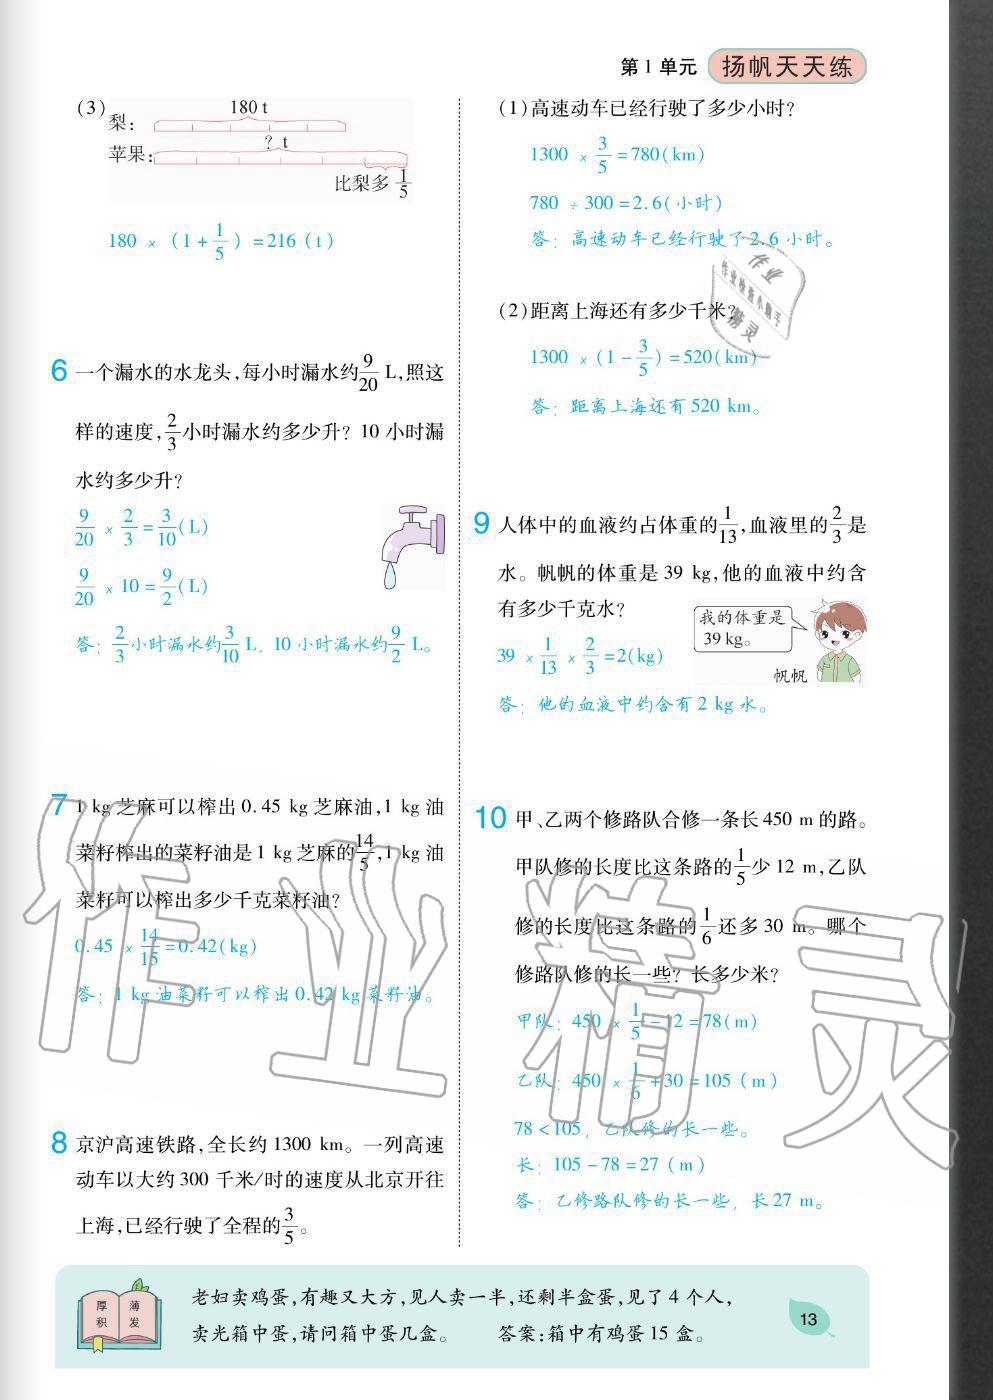 第1单元 扬帆天天练
(3)
180 t
梨:
? t
苹果:
比梨多 1/5
180 × (1+1/5) =216 (t)
6 一个漏水的水龙头,每小时漏水约9/20 L,照这
样的速度,2/3小时漏水约多少升? 10 小时漏
水约多少升?
9/20 × 2/3 = 3/10(L)
9/20 × 10 = 9/2(L)
答: 2/3小时漏水约3/10 L, 10 小时漏水约9/2 L。
7 1 kg 芝麻可以榨出 0.45 kg 芝麻油,1 kg 油
菜籽榨出的菜籽油是 1 kg 芝麻的14/5,1 kg 油
菜籽可以榨出多少千克菜籽油?
0.45 × 14/15 =0.42(kg)
答: 1 kg 油菜籽可以榨出 0.42 kg 菜籽油。
8 京沪高速铁路,全长约 1300 km。一列高速
动车以大约 300 千米/时的速度从北京开往
上海,已经行驶了全程的3/5。
(1)高速动车已经行驶了多少小时?
1300 × 3/5 =780(km)
780 ÷ 300 =2.6(小时)
答: 高速动车已经行驶了 2.6 小时。
(2)距离上海还有多少千米?
1300 ×(1-3/5) =520(km)
答: 距离上海还有 520 km。
9 人体中的血液约占体重的1/13,血液里的2/3是
水。帆帆的体重是 39 kg,他的血液中约含
有多少千克水?
我的体重是
39 kg。
帆帆
39 × 1/13 × 2/3 =2(kg)
答: 他的血液中约含有 2 kg 水。
10 甲、乙两个修路队合修一条长 450 m 的路。
甲队修的长度比这条路的1/5少 12 m,乙队
修的长度比这条路的1/6还多 30 m。哪个
修路队修的长一些? 长多少米?
甲队: 450 × 1/5 -12 =78(m)
乙队: 450 × 1/6 +30 =105 (m)
78 <105, 乙队修的长一些。
长: 105 -78 =27 (m)
答: 乙修路队修的长一些, 长 27 m。
厚积 薄发
老妇卖鸡蛋,有趣又大方,见人卖一半,还剩半盒蛋,见了 4 个人,
卖光箱中蛋,请问箱中蛋几盒。 答案:箱中有鸡蛋 15 盒。
13
作业
作业检查小助手
精灵
作业精灵